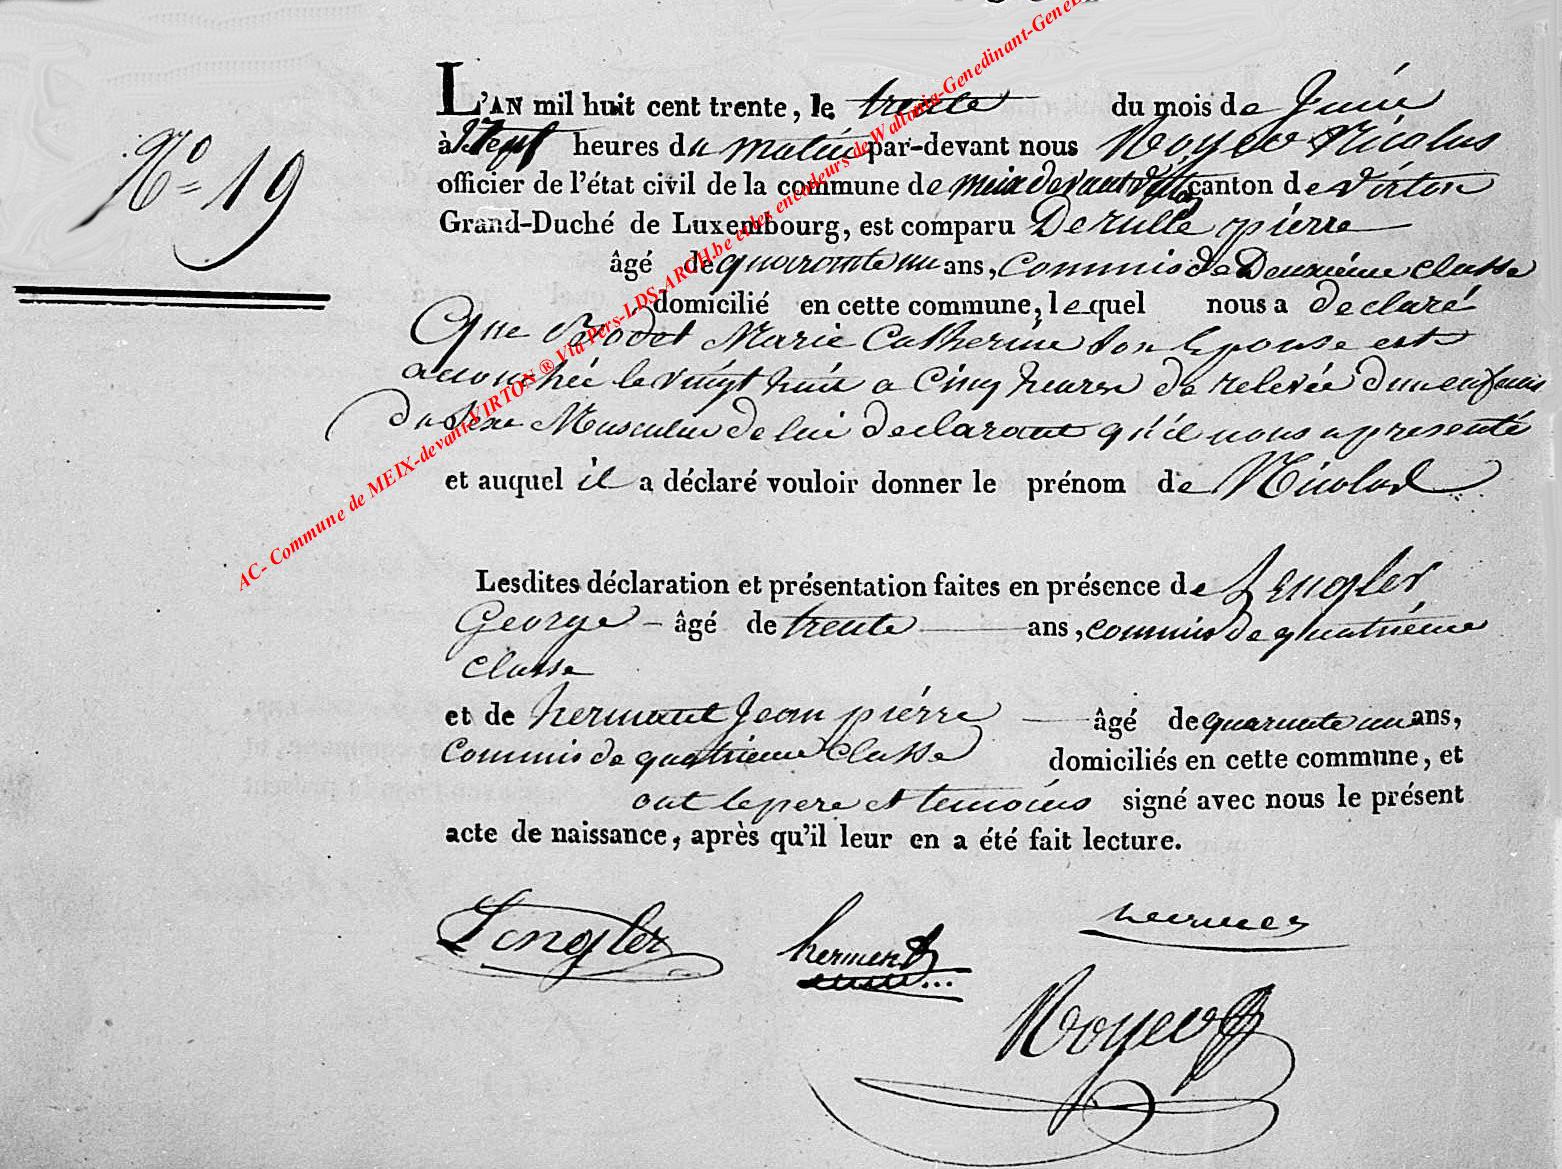 N° 19
L'AN mil huit cent trente, le trente du mois de Juin
à neuf heures du matin par-devant nous Noyer Nicolas
officier de l'état civil de la commune de meix devant Virton canton de Virton
Grand-Duché de Luxembourg, est comparu Derulle pierre
âgé de quarante un ans, Commis de Deuxième classe
domicilié en cette commune, lequel nous a declaré
Que Marie Catherine son Epouse est
accouchée le vingt huit a Cinq heures de relevée d'un enfant
du sexe Masculin de lui déclarant qu'il nous a presenté
et auquel il a déclaré vouloir donner le prénom de Nicolas
Lesdites déclaration et présentation faites en présence de Lengler
George âgé de trente ans, commis de quatrième
classe
et de hermant Jean pierre âgé de quarante un ans,
Commis de quatrieme Classe domiciliés en cette commune, et
ont le pere et temoins signé avec nous le présent
acte de naissance, après qu'il leur en a été fait lecture.
Lengler herment
Noyer
AC- Commune de MEIX-devant-VIRTON ® Via Pers-LDS-ARCH.be et les encodeurs de Wallonia-Genedinant-GeneB